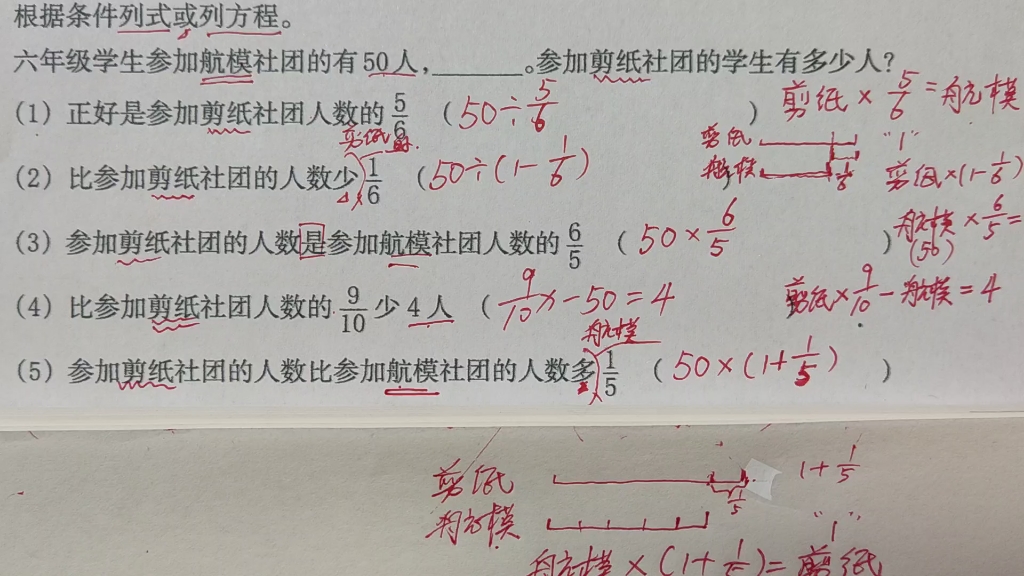 根据条件列式或列方程。
六年级学生参加航模社团的有50人，______。参加剪纸社团的学生有多少人?
(1) 正好是参加剪纸社团人数的5/6 (50÷5/6) 剪纸×5/6=航模
剪纸 剪纸 "1"
(2) 比参加剪纸社团的人数少1/6 (50÷(1-1/6)) 航模 1/6 剪纸×(1-1/6)
(3) 参加剪纸社团的人数是参加航模社团人数的6/5 (50×6/5) 航模×6/5=
(50)
(4) 比参加剪纸社团人数的9/10少4人 (9/10x-50=4 剪纸×9/10-航模=4
航模
(5) 参加剪纸社团的人数比参加航模社团的人数多1/5 (50×(1+1/5))
剪纸 1/5 1+1/5
航模 "1"
航模×(1+1/5)=剪纸